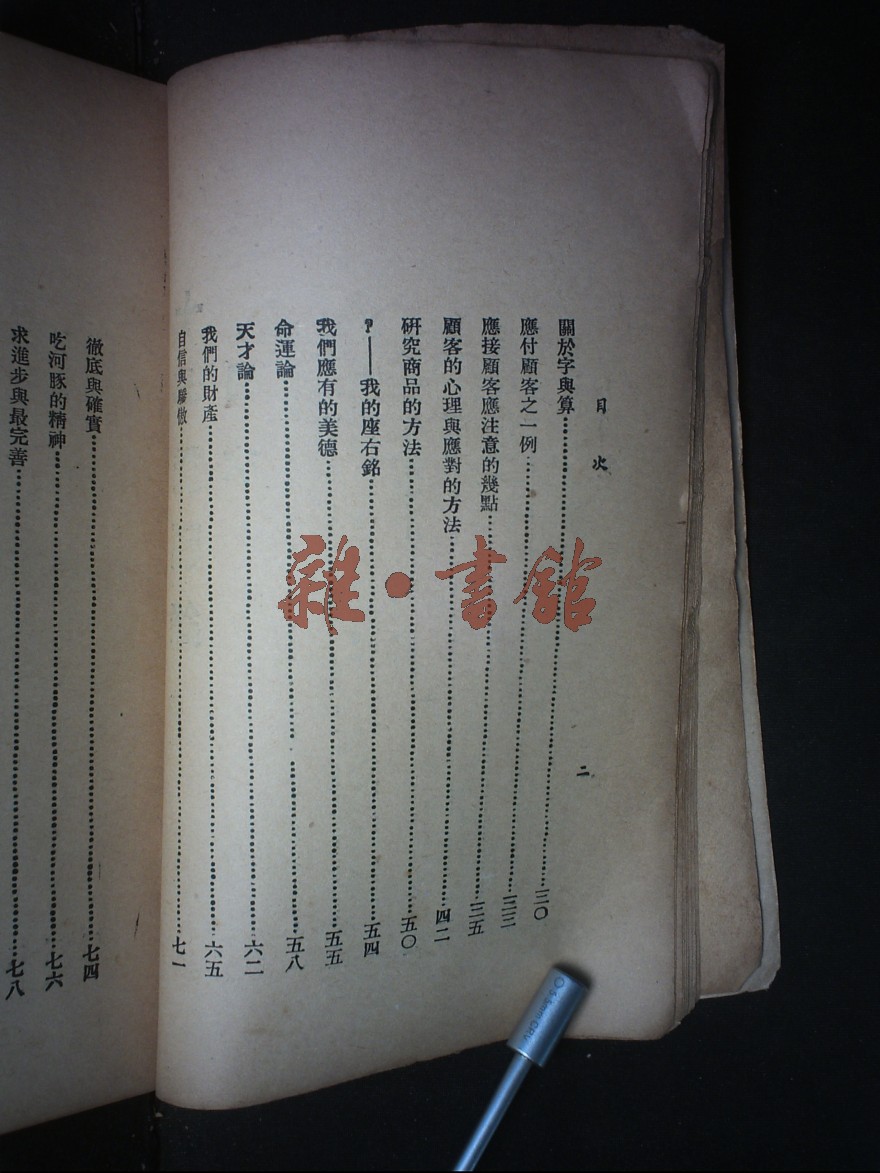 目次
二
關於字與算三〇
應付顧客之一例三三
應接顧客應注意的幾點三五
顧客的心理與應對的方法四二
研究商品的方法五〇
？——我的座右銘五四
我們應有的美德五五
命運論五八
天才論六二
我們的財產六五
自信與驕傲七一
徹底與確實七四
吃河豚的精神七六
求進步與最完善七八
雜·書館